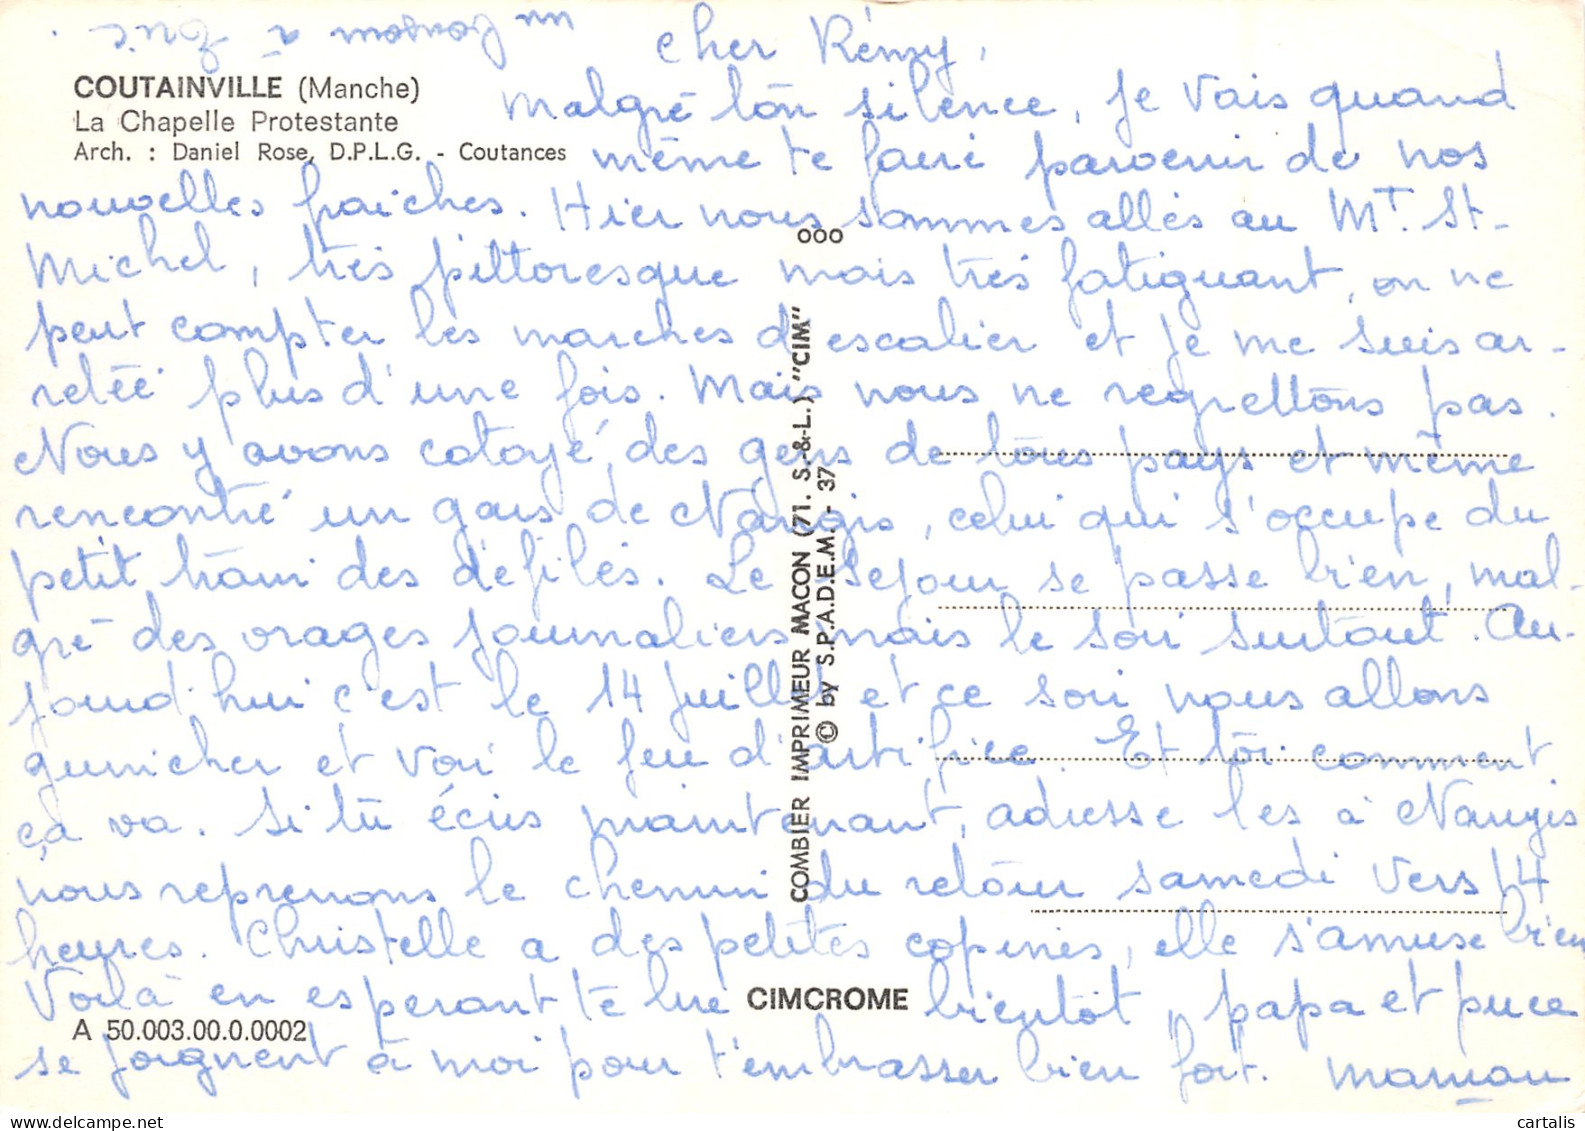 un bonjour à Eric.
Cher Rémy,
COUTAINVILLE (Manche)
La Chapelle Protestante
Arch. : Daniel Rose, D.P.L.G. - Coutances
Malgré ton silence, je vais quand
même te faire parvenir de nos
nouvelles fraîches. Hier nous sommes allés au Mt. St-
Michel, très pittoresque mais très fatiguant, on ne
peut compter les marches d'escalier et je me suis ar-
retée plus d'une fois. Mais nous ne regrettons pas.
Nous y avons cotoyé des gens de tous pays et même
rencontré un gars de Nangis, celui qui s'occupe du
petit train des défilés. Le séjour se passe bien, mal-
gré des orages journaliers mais le soir surtout. Au-
jourd'hui c'est le 14 juillet et ce soir nous allons
guincher et voir le feu d'artifice. Et toi comment
ça va. Si tu écris maintenant, adresse les à Nangis
nous reprenons le chemin du retour samedi vers 14
heures. Christelle a des petites copines, elle s'amuse bien
Voilà en esperant te lire bientôt, papa et puce
se joignent à moi pour t'embrasser bien fort. Maman
ooo
COMBIER IMPRIMEUR MACON (71. S.-&-L.) "CIM"
© by S.P.A.D.E.M. - 37
CIMCROME
A 50.003.00.0.0002
cartalis